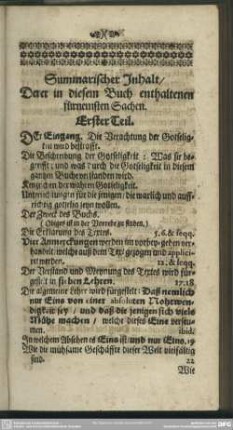 Summarischer Inhalt/
Derer in diesem Buch enthaltenen
fürnemsten Sachen.
Erster Teil.
Der Eingang. Die Verachtung der Gotselig-
keit wird bestrafft.
Die Beschreibung der Gotseligkeit: Was sie be-
greifft; und was durch die Gotseligkeit in diesem
gantzen Buch verstanden wird.
Kenzeichen der wahren Gotseligkeit.
Unterrichtungen für die jenigen/ die warlich und auff-
richtig gotselig seyn wollen.
Der Zweck des Buchs.
(Obiges ist in der Vorrede zu finden.)
Die Erklärung des Textes. 5.6.& seqq.
Vier Anmerckungen werden im vorher-gehen ver-
handelt, welche auß dem Text gezogen und applici-
ret werden. 12.& seqq.
Der Verstand und Meynung des Textes wird für-
gestelt in sieben Lehren. 17.18
Die algemeine Lehre wird fürgestelt: Daß nemlich
nur Eins von einer absoluten Nohtwen-
digkeit sey/ und daß die jenigen sich viels
Mühe machen/ welche dieses Eine versäu-
men. ibid.
In welchem Absehen es Eins ist und nur Eins. 19
Wie die mühsame Geschäffte dieser Welt vielfältig
seind. 22
Wie